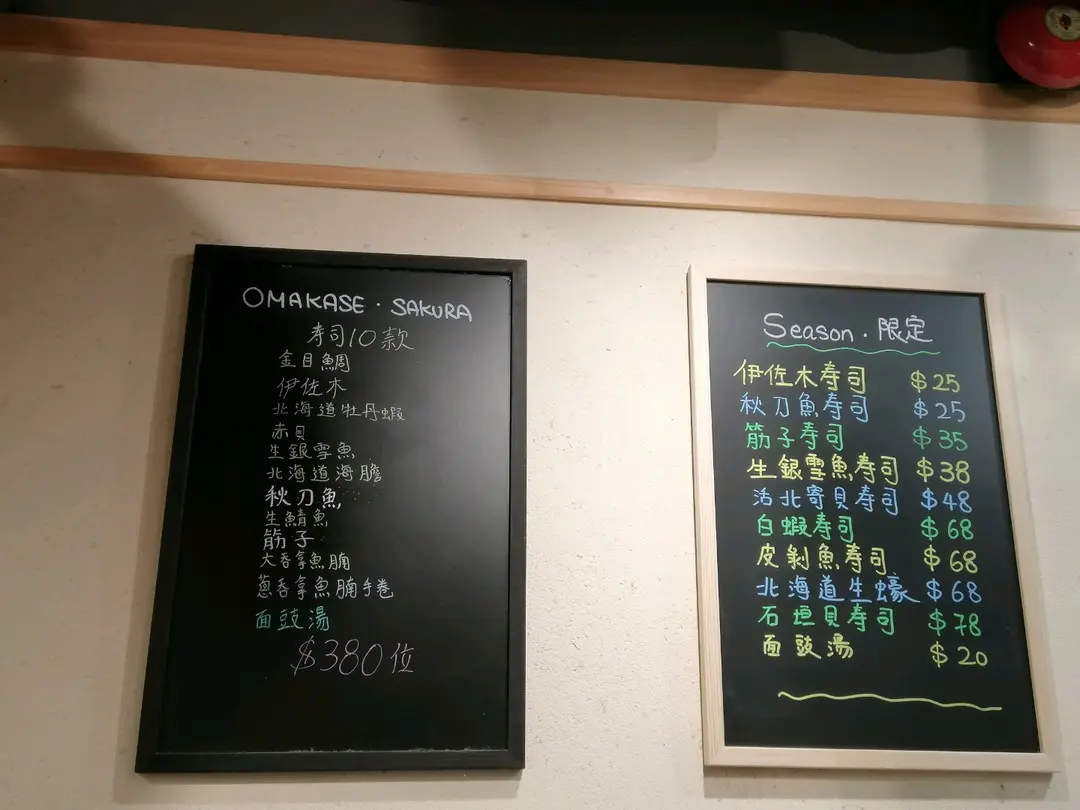 OMAKASE · SAKURA
寿司10款
金目鯛
伊佐木
北海道牡丹蝦
赤貝
生銀雪魚
北海道海膽
秋刀魚
生鯖魚
筋子
大吞拿魚腩
蔥吞拿魚腩手卷
面豉湯
$380位
Season · 限定
伊佐木寿司 $25
秋刀魚寿司 $25
筋子寿司 $35
生銀雪魚寿司 $38
活北寄貝寿司 $48
白蝦寿司 $68
皮剝魚寿司 $68
北海道生蠔 $68
石垣貝寿司 $78
面豉湯 $20